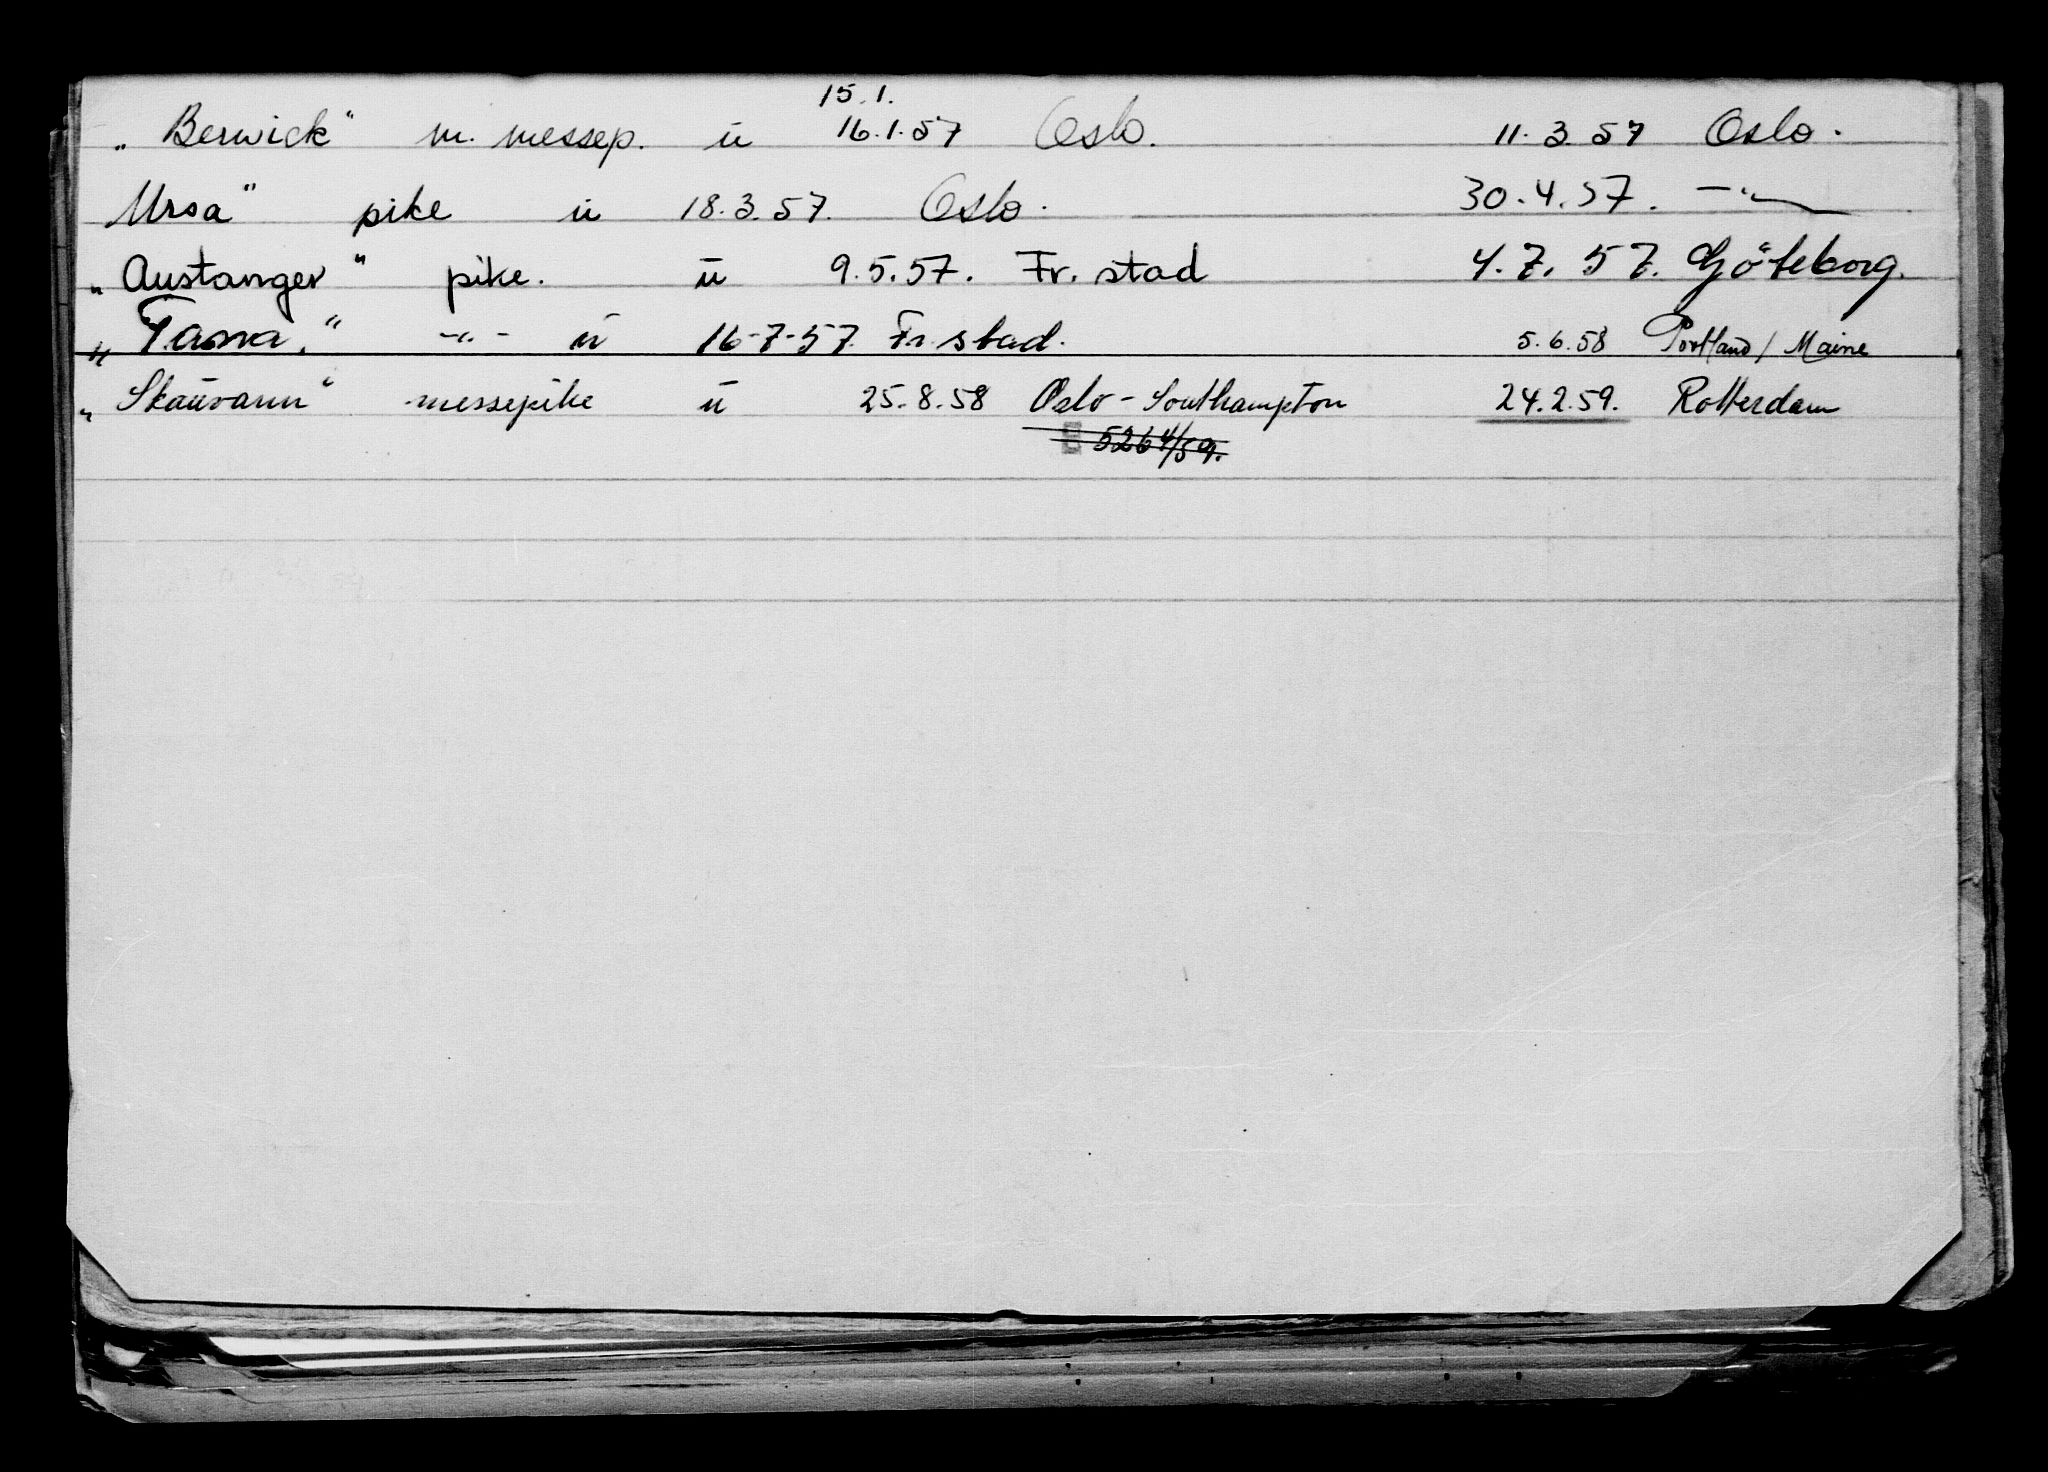 15.1.
„Berwick" m. messep. u 16.1.57 Oslo. 11.3.57 Oslo.
Ursa" pike u 18.3.57. Oslo. 30.4.57. —"—
„Austanger" pike. u 9.5.57. Fr. stad 4.7.57. Göteborg.
„Tasna." -"- u 16-7-57 Fr. stad. 5.6.58 Portland/Maine
„Skauvann" messepike u 25.8.58 Oslo - Southampton 24.2.59. Rotterdam
5264/59.